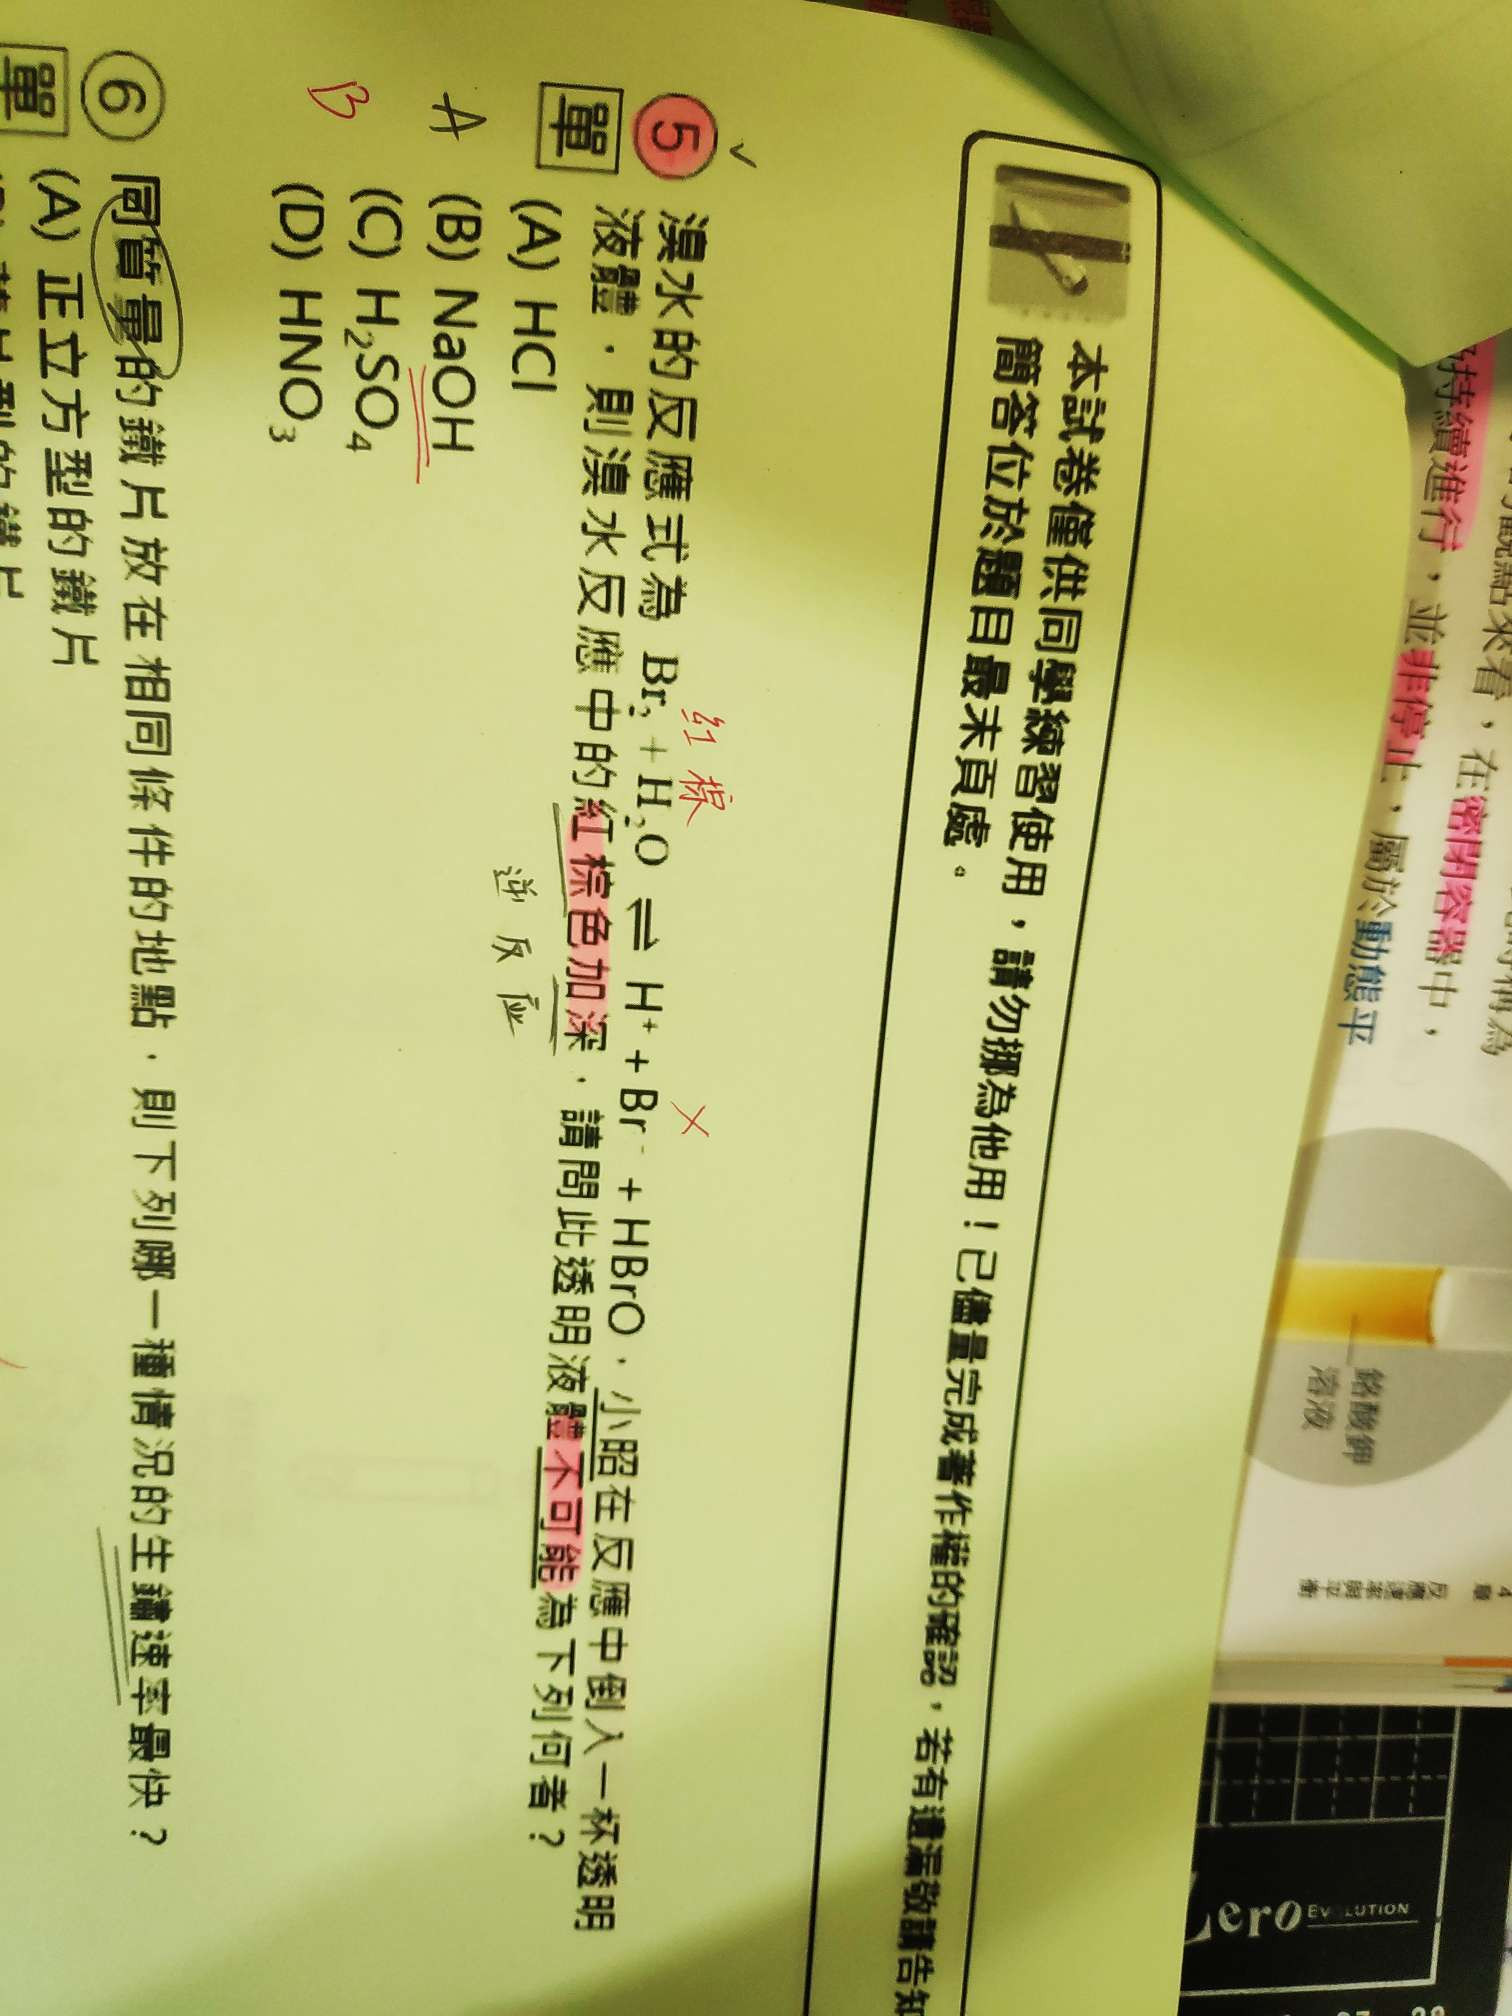 好持續進行，並非停止，屬於動態平
在密閉容器中，
鉻酸鉀
溶液
反應速率與平衡
Zero EVOLUTION
本試卷僅供同學練習使用，請勿挪為他用！已儘量完成著作權的確認，若有遺漏敬請告知
簡答位於題目最末頁處。
紅棕
✓ ⑤ 溴水的反應式為 Br₂ + H₂O ⇌ H⁺ + Br⁻ + HBrO，小昭在反應中倒入一杯透明
單 液體，則溴水反應中的紅棕色加深，請問此透明液體不可能為下列何者？
逆反應
(A) HCl
A (B) NaOH
(C) H₂SO₄
B (D) HNO₃
⑥ 同質量的鐵片放在相同條件的地點，則下列哪一種情況的生鏽速率最快？
單 (A) 正立方型的鐵片